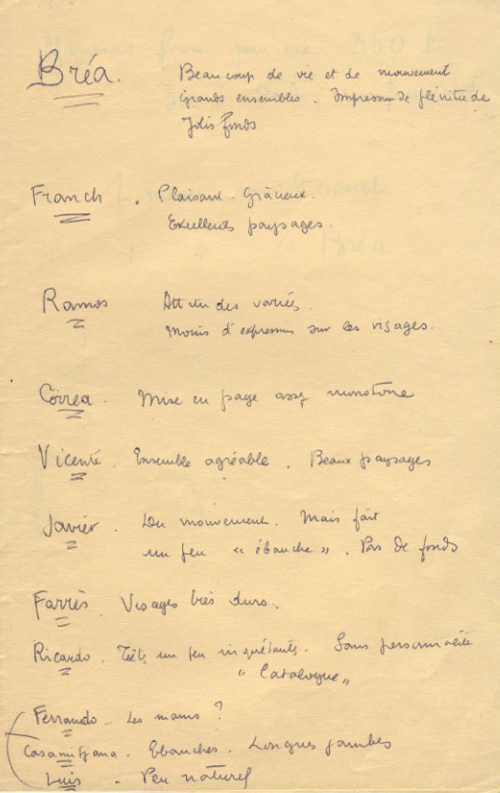 Bréa. Beaucoup de vie et de mouvement
Grands ensembles. Impression de plénitude
Jolis fonds
Franch. Plaisant. Gracieux.
Excellents paysages.
Ramos Attitudes variées.
Moins d'expression sur les visages.
Corréa. Mise en page assez monotone
Vicenté. Ensemble agréable. Beaux paysages
Javier. Du mouvement. Mais fait
un peu "ébauche". Pas de fonds
Farrès. Visages très durs.
Ricardo. un peu inquiétants. Sans personnalité
"Catalogue"
Ferrando... Les mains?
Casamitjana. Ebauches. Longues jambes
Luis. Peu naturel